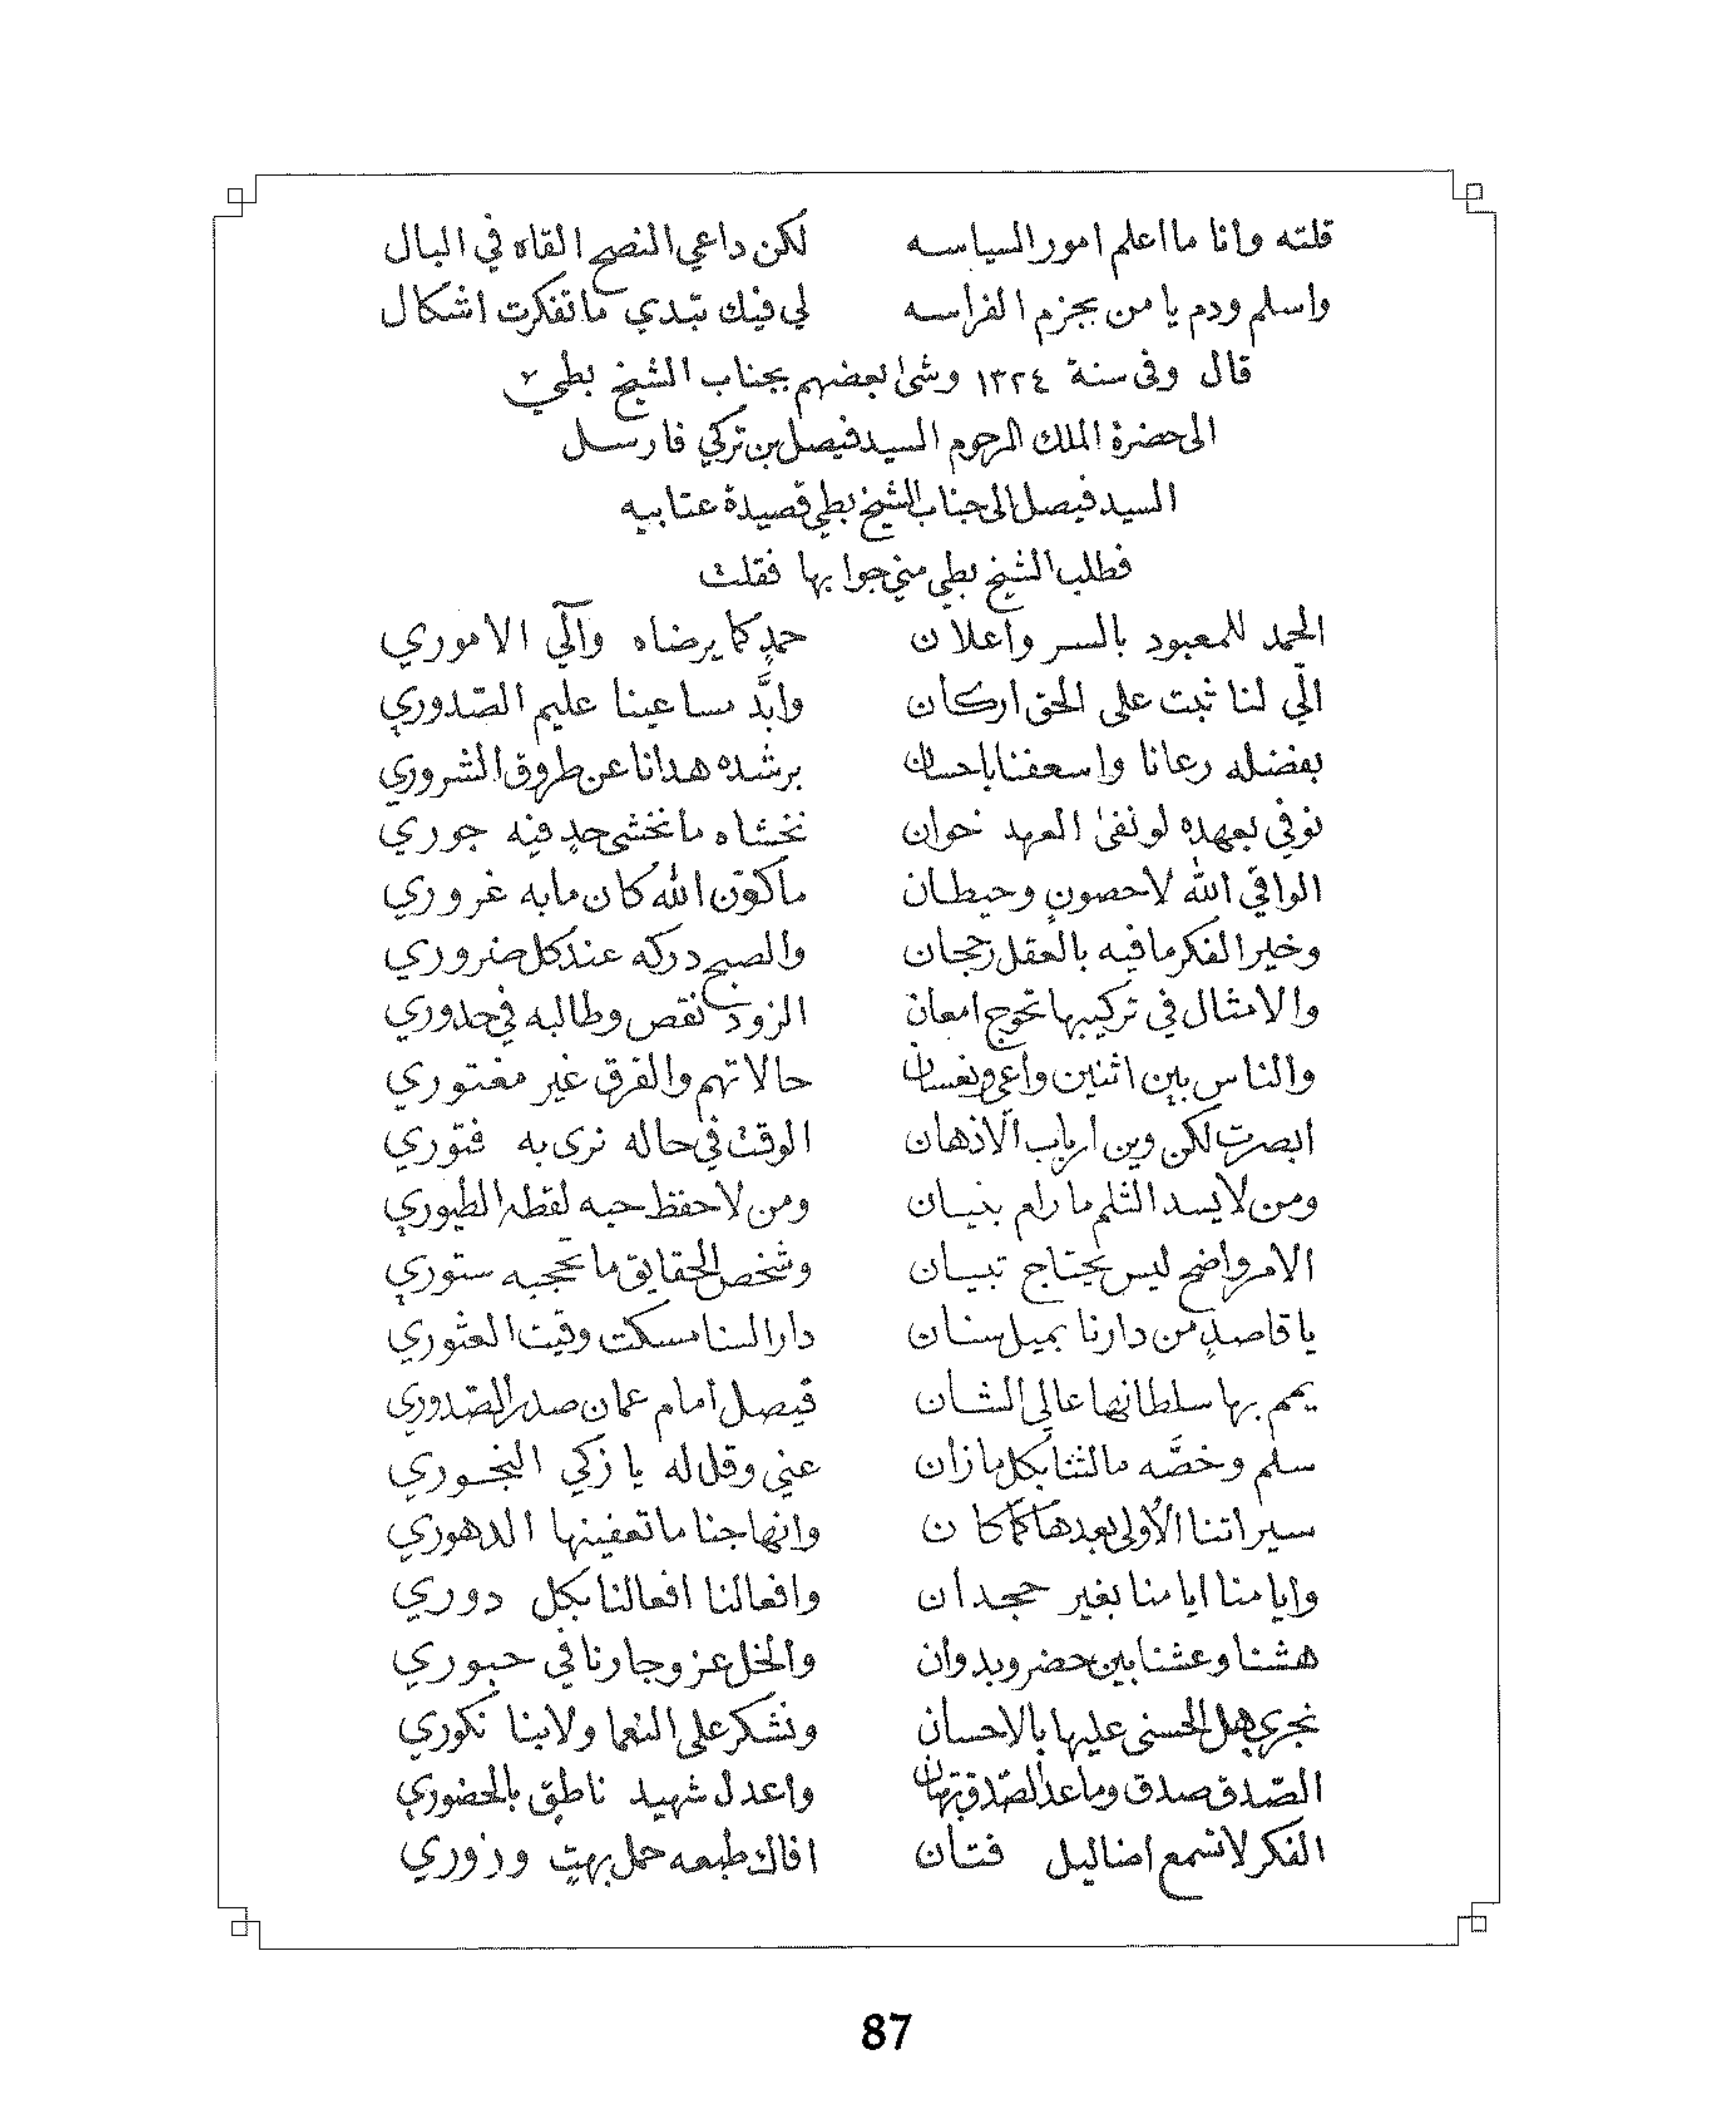 قلته وانا ما اعلم امور السياسه لكن داعي النصح القاه في البال
واسلم ودم يا من بجزم الفراسه لي فيك تبدي ما تفكرت اشكال
قال وفى سنة ١٣٢٤ وشىٰ بعضهم بجناب الشيخ بطي
الى حضرة الملك المرحوم السيد فيصل بن تركي فارسل
السيد فيصل الى جناب الشيخ بطي قصيدة عتابيه
فطلب الشيخ بطي مني جوابها فقلت
الحمد للمعبود بالسر واعلان حمدٍ كما يرضاه وآلي الاموري
الّي لنا ثبت على الحق اركان وابَّد مساعينا عليم الصّدوري
بفضله رعانا واسعفنا باحسان برشده هدانا عن طروق الشروري
نوفي بعهده لو نفىٰ العهد خوان نخشاه ما نخشى حدٍ فيه جوري
الواقي الله لا حصونٍ وحيطان ما كوّن الله كان ما به غروري
وخير الفكر ما فيه بالعقل رجحان والصبح دركه عند كل ضروري
والامثال في تركيبها تخرج امعان الزود نقص وطالبه في حدوري
والناس بين اثنين واعي ونعسان حالاتهم والفرق غير مغتوري
ابصرت لكن وين ارباب الاذهان الوقت في حاله نرى به فتوري
ومن لا يسد الثلم ما رام بنيان ومن لا حفظ حبه لقطه الطيوري
الامر واضح ليس يحتاج تبيان وشخص الحقايق ما تحجبه ستوري
يا قاصدٍ من دارنا بميل سنان دار السنا مسكت وقيت العثوري
يمم بها سلطانها عالي الشان فيصل امام عمان صدر الصّدوري
سلم وخصَّه مالثنا بكل ما زان عني وقل له يا زكي النجوري
سيراتنا الأولى بعدها كما كان وانهاجنا ما تعفينها الدهوري
وايامنا ايامنا بغير جحدان وافعالنا افعالنا بكل دوري
هشنا وعشنا بين حضر وبدوان والخل عز وجارنا في حبوري
نجزي هل الحسنى عليها بالاحسان ونشكر على النعما ولا بنا نكوري
الصّدق صدق وما عدا الصّدق بهتان واعدل شهيد ناطق بالحضوري
الفكر لا تسمع اضاليل فتان افاك طبعه حمل بهتٍ وزوري
87